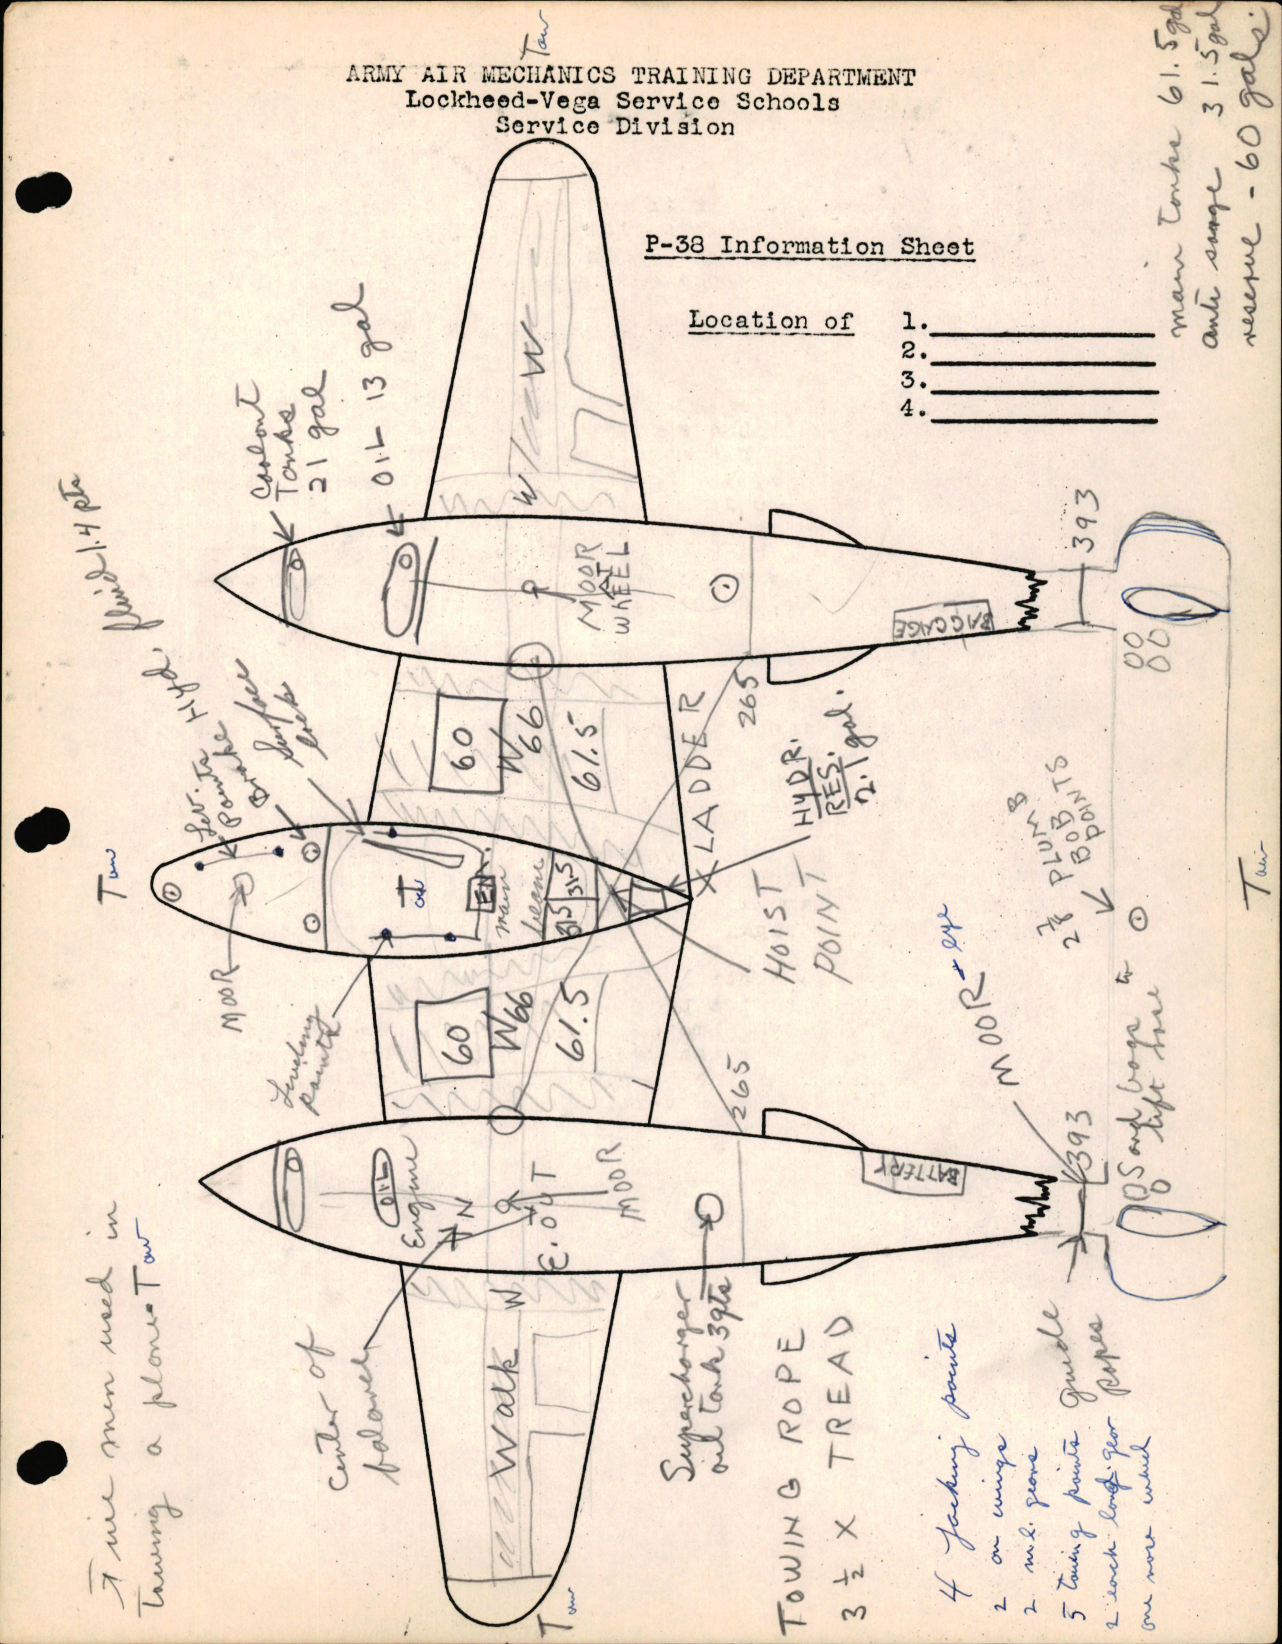 ARMY AIR MECHANICS TRAINING DEPARTMENT
Lockheed-Vega Service Schools
Service Division
P-38 Information Sheet
Location of 1.
2.
3.
4.
main tanks 61.5 gal
31.5 gal
reserve - 60 gals.
Tow
Coolant
Tanks
21 gal
OIL - 13 gal
Hyd. fluid 1.4 pts
Brake
Surface
lock
Lev.
Points
W
W
MOOR
AT
WHEEL
BAGGAGE
393
60
W
66
61.5
LADDER
X
265
HYDR.
RES.
2.1 gal.
Tow
MOOR
Tow
EN.
main
beam
31.5
31.5
HOIST
POINT
2 7/8 PLUMB
BOB
POINTS
Tow
Leveling
Points
60
W
66
61.5
265
MOOR + eye
Sand bags to
lift nose
393
OIL
Engine
N
E. OUT
MOOR
BATTERY
Five men used in
Towing a plane
Tow
Center of
balance
W
Walk
Supercharger
oil tank 3 qts
Tow
TOWING ROPE
3 1/2 X TREAD
guide
ropes
4 Jacking points
2 on wings
2 m.l. gears
5 towing points
2 each landg. gear
one nose wheel